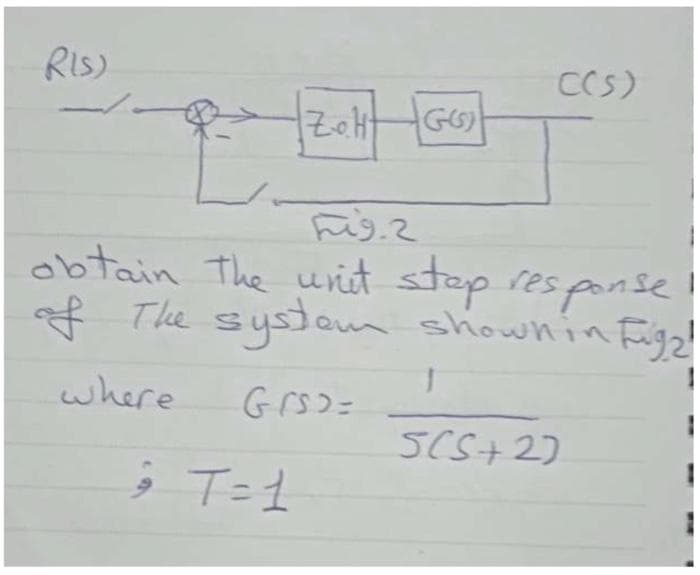 R(S)
C(S)
Z.O.H
G(S)
-
Fig.2
obtain The unit step response
of The system shown in Fig2
where G(S)= 1
S(S+2)
; T=1